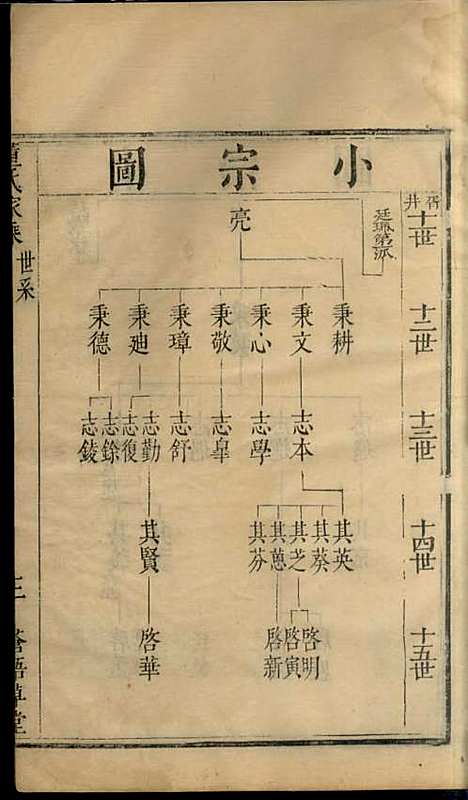 小宗圖
胥井
十一世
十二世
十三世
十四世
十五世
廷珮第派
亮
秉耕
秉文
秉心
秉敬
秉璋
秉廸
秉德
志本
志學
志皐
志舒
志勤
志復
志錂
志錂
其英
其葵
其芝
其蒽
其芬
其賢
啓明
啓寅
啓新
啓華
氏家乘
世系
三
梧草堂